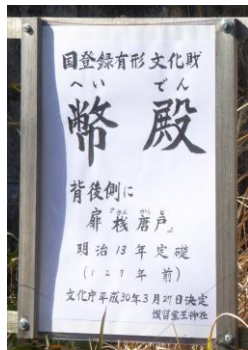 国登録有形文化財
へいでん
幣殿
背後側に
扉桟唐戸
明治13年定礎
(127年前)
文化庁平成30年3月27日決定